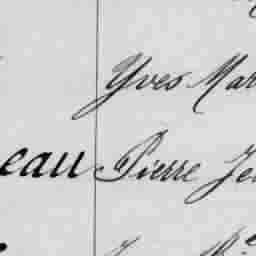 Yves Mar
eau Pierre Je